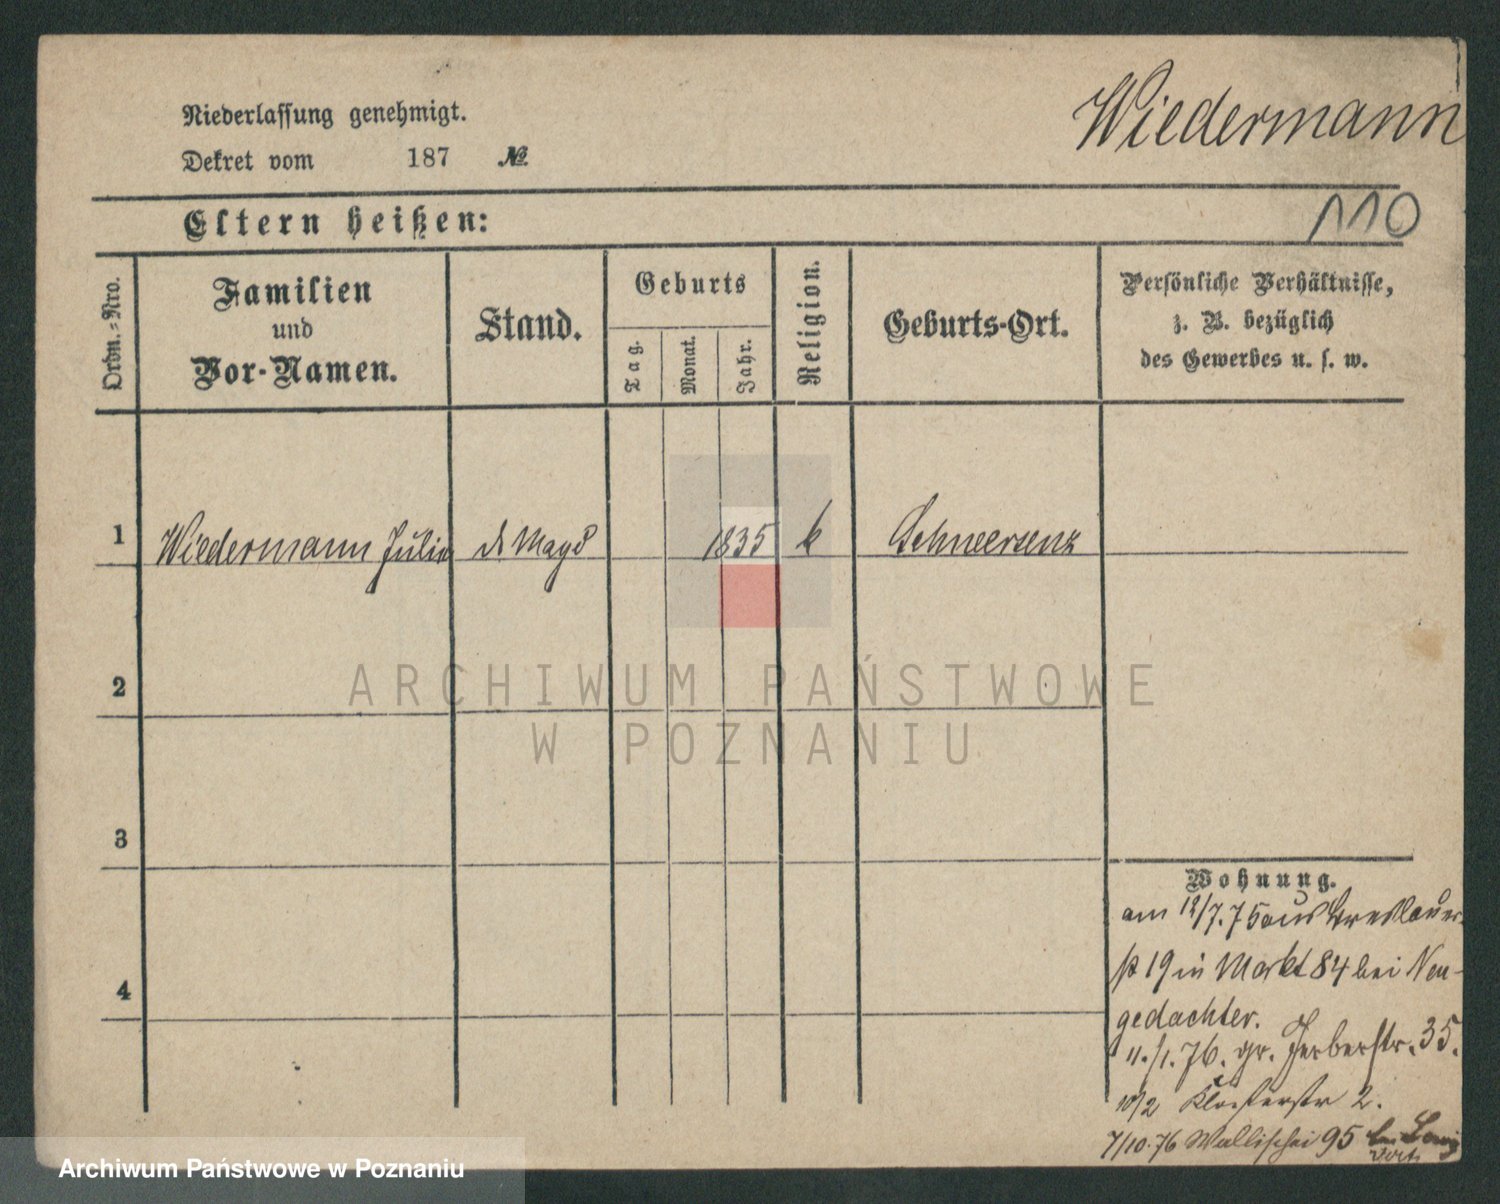 Wiedermann
Niederlassung genehmigt.
Dekret vom 187 №
110
Eltern heißen:
Ordn.-Nro.
Familien
und
Vor-Namen.
Stand.
Geburts
Tag.
Monat.
Jahr.
Religion.
Geburts-Ort.
Persönliche Verhältnisse,
z. B. bezüglich
des Gewerbes u. s. w.
1 Wiedermann Julie d. Magd 1835 k Schneersenz
2
3
4
ARCHIWUM PAŃSTWOWE
W POZNANIU
Wohnung.
am 12/7.75 aus Breslauer-
st 19 in Markt 84 bei Neu-
gedachter.
11./1.76. gr. Gerberstr. 35.
10/2 Klosterstr 2.
7/10.76 Wallischei 95
Archiwum Państwowe w Poznaniu